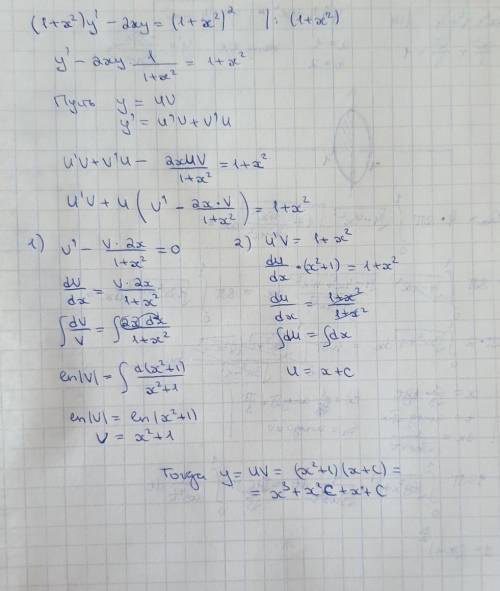 (1+x²)y' - 2xy = (1+x²)² |: (1+x²)
y' - 2xy · 1/(1+x²) = 1+x²
Пусть y = UV
y' = U'V + V'U
U'V + V'U - 2xUV/(1+x²) = 1+x²
U'V + U (V' - 2x·V/(1+x²)) = 1+x²
1) V' - V·2x/(1+x²) = 0
dV/dx = V·2x/(1+x²)
∫dV/V = ∫2x dx/(1+x²)
ln|V| = ∫d(x²+1)/(x²+1)
ln|V| = ln|x²+1|
V = x²+1
2) U'V = 1+x²
du/dx · (x²+1) = 1+x²
du/dx = (1+x²)/(1+x²)
∫du = ∫dx
U = x+C
Тогда y = UV = (x²+1)(x+C) =
= x³ + x²C + x + C